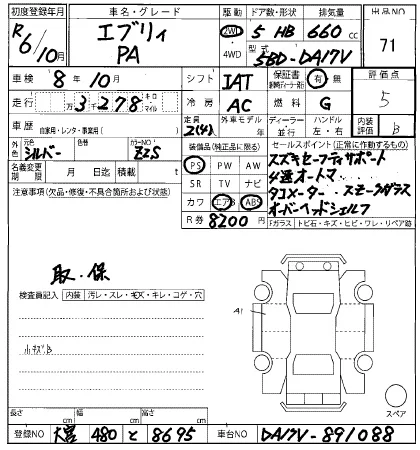 初度登録年月 車名・グレード 駆動 ドア数・形状 排気量 出品NO
R6/10月 エブリィ PA 2WD 4WD 5 HB 660 cc 71
型式 5BD-DA17V
車検 8年10月 シフト IAT 保証書 有 無 評価点
走行 万 3,278 キロ マイル 冷房 AC 燃料 G 5
車歴 自家用・レンタ・事業用( ) 定員 2(4)人 外車モデル年 ディーラー 並行 ハンドル 左・右 内装評価 B
外色 元色 シルバー 色替 カラーNO Z2S 装備品(純正品に限る) セールスポイント(正常に作動するもの)
名義変更期限 月 日 積載 t PS PW AW スズキセーフティサポート
注意事項(欠品・修復・不具合箇所および状態) SR TV ナビ 4速オートマ
カワ エアB ABS タコメーター スモークガラス
R券 8200円 オーバーヘッドシェルフ
Fガラス トビ石・キズ・ヒビ・ワレ・リペア跡
取・保
検査員記入 内装 汚レ・スレ・キズ・キレ・コゲ・穴
A1
小キズB
スペア
長さ cm 幅 cm 高さ cm
登録NO 大宮 480 と 8695 車台NO DA17V-891088